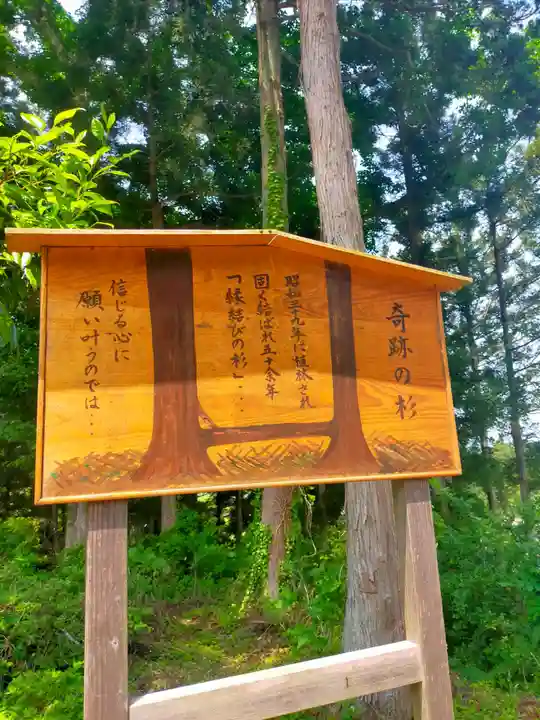 奇跡の杉
昭和三十九年に植林され
固く結ばれ五十余年
「縁結びの杉」・・・
信じる心に
願い叶うのでは・・・